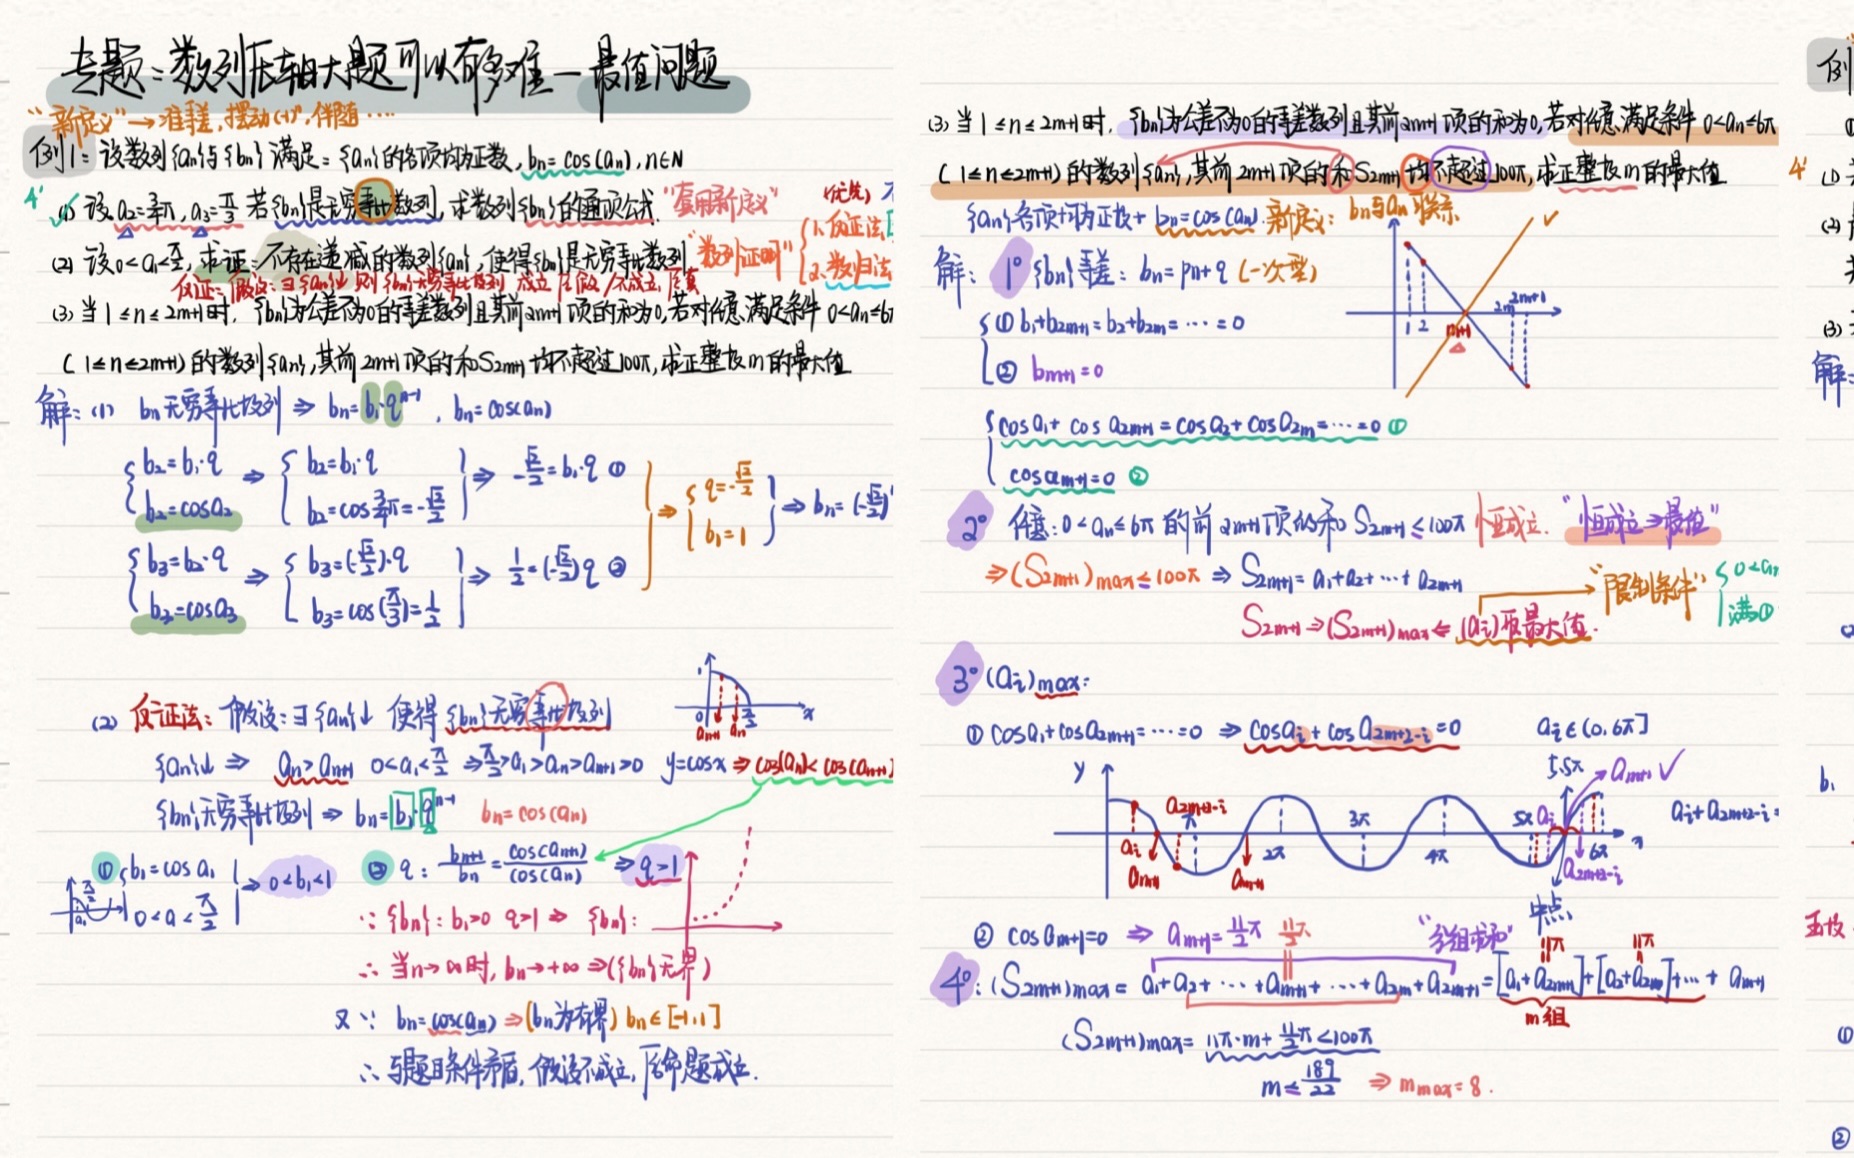 专题：数列压轴大题可以有多难—最值问题
"新定义"→准等差,摆动(-1)ⁿ,伴随…
例1：设数列{an}与{bn}满足：{an}的各项均为正数, bn=cos(an), n∈N
4' (1) 设a₂=3/4π, a₃=π/3 若{bn}是无穷等比数列, 求数列{bn}的通项公式. "套用新定义" (优先)
(2) 设0<a₁<π/2, 求证：不存在递减的数列{an}, 使得{bn}是无穷等比数列 "数列证明" { 1. 反证法 2. 数归法
反证：假设：∃{an}↓ 则{bn}无穷等比数列 成立
(3) 当1≤n≤2m+1时, {bn}为公差不为0的等差数列且其前2m+1项的和为0, 若对任意满足条件 0<an≤6π
(1≤n≤2m+1)的数列{an}, 其前2m+1项的和S2m+1均不超过100π, 求正整数m的最大值
解：(1) bn无穷等比数列 ⇒ bn=b₁·qⁿ⁻¹, bn=cos(an)
{ b₂=b₁·q b₂=cosa₂ ⇒ { b₂=b₁·q b₂=cos3/4π=-√2/2 } ⇒ -√2/2=b₁·q ①
{ b₃=b₂·q b₂=cosa₃ ⇒ { b₃=(-√2/2)·q b₃=cos(π/3)=1/2 } ⇒ 1/2=(-√2/2)q ②
⇒ { q=-√2/2 b₁=1 } ⇒ bn=(-√2/2)
(2) 反证法：假设：∃{an}↓ 使得{bn}无穷等比数列
{an}↓ ⇒ an>an+1 0<a₁<π/2 ⇒ π/2>a₁>an>an+1>0 y=cosx ⇒ cos(an)<cos(an+1)
{bn}无穷等比数列 ⇒ bn=b₁·qⁿ⁻¹ bn=cos(an)
① { b₁=cosa₁ 0<a<π/2 } ⇒ 0<b₁<1 ② q: bn+1/bn = cos(an+1)/cos(an) ⇒ q>1
∵ {bn}: b₁>0 q>1 ⇒ {bn}:
∴ 当n→∞时, bn→+∞ ⇒ ({bn}无界)
又∵ bn=cos(an) ⇒ (bn为有界) bn∈[-1,1]
∴ 与题目条件矛盾, 假设不成立, 原命题成立.
(3) 当1≤n≤2m+1时, {bn}为公差不为0的等差数列且其前2m+1项的和为0, 若对任意满足条件 0<an≤6π
(1≤n≤2m+1)的数列{an}, 其前2m+1项的和S2m+1均不超过100π, 求正整数m的最大值
{an}各项均为正数+bn=cos(an) 新定义：bn与an关系
解：1° {bn}等差：bn=pn+q (一次型)
{ ① b₁+b2m+1=b₂+b2m=⋯=0
② bm+1=0
1 2 m+1 2m 2m+1
{ cosa₁+cosa2m+1=cosa₂+cosa2m=⋯=0 ①
cosam+1=0 ②
2° 任意：0<an≤6π的前2m+1项的和 S2m+1≤100π 恒成立. "恒成立⇒最值"
⇒ (S2m+1)max≤100π ⇒ S2m+1=a₁+a₂+⋯+a2m+1 "限制条件" { 0<an 满①
S2m+1 ⇒ (S2m+1)max ⇐ (ai)取最大值.
3° (ai)max:
① cosa₁+cosa2m+1=⋯=0 ⇒ cosai+cosa2m+2-i=0 ai∈(0,6π]
y ai am+1 a2m+2-i π am+1 2π 3π 4π 5π ai 5.5π am+1 ✓ a2m+2-i 6π 中点 ai+a2m+2-i=
② cosam+1=0 ⇒ am+1=11/2π 11/2π "分组求和" 11π 11π
4°: (S2m+1)max=a₁+a₂+⋯+am+1+⋯+a2m+a2m+1=[a₁+a2m+1]+[a₂+a2m]+⋯+am+1
m组
(S2m+1)max=11π·m+11/2π≤100π
m≤189/22 ⇒ mmax=8.
例
4' (1)
(2)
(3)
解：
b₁
①
②